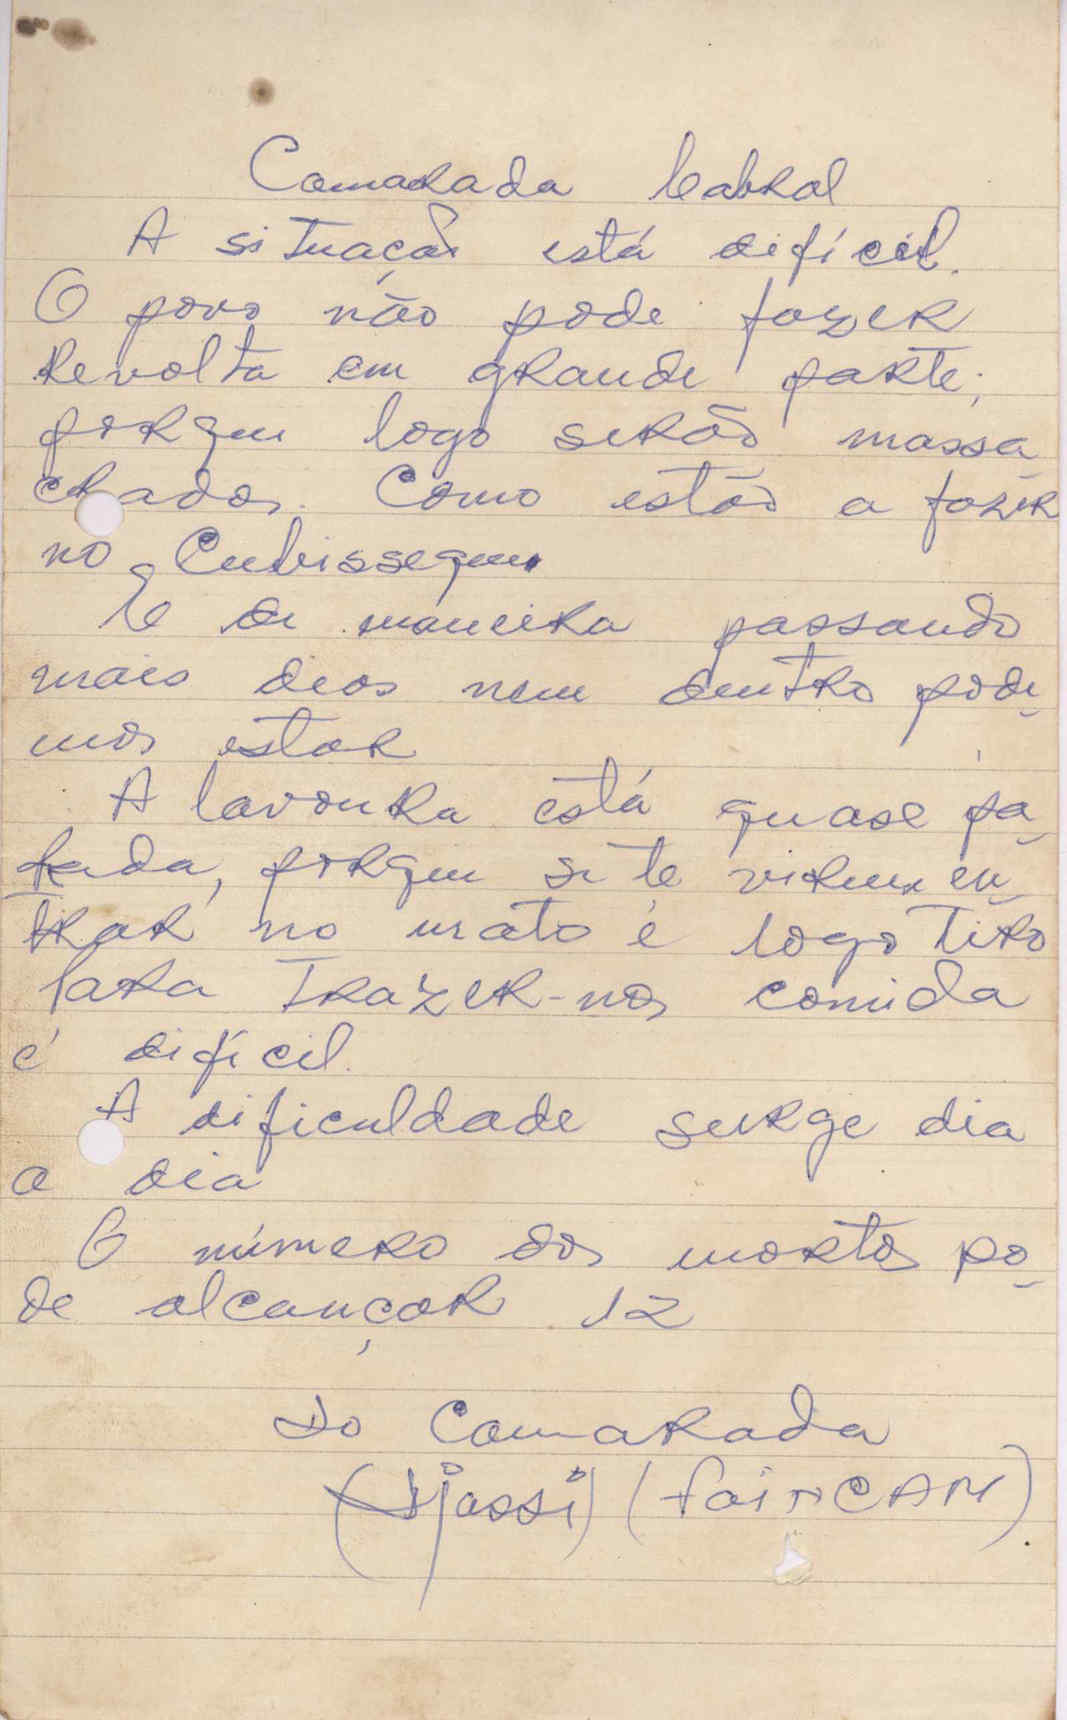 Camarada Cabral
A situação está difícil.
O povo não pode fazer
Revolta em grande parte;
porque logo serão massa-
crados. Como estão a fazer
no Cubisseque.
E de maneira passando
mais dias nem dentro pode-
mos estar
A lavoura está quase pa-
rada, porque se te virem en-
trar no mato é logo tiro
Para trazer-nos comida
é difícil.
A dificuldade surge dia
a dia
O número dos mortos po-
de alcançar 12
Do Camarada
(Djassi) (FAINCAM).